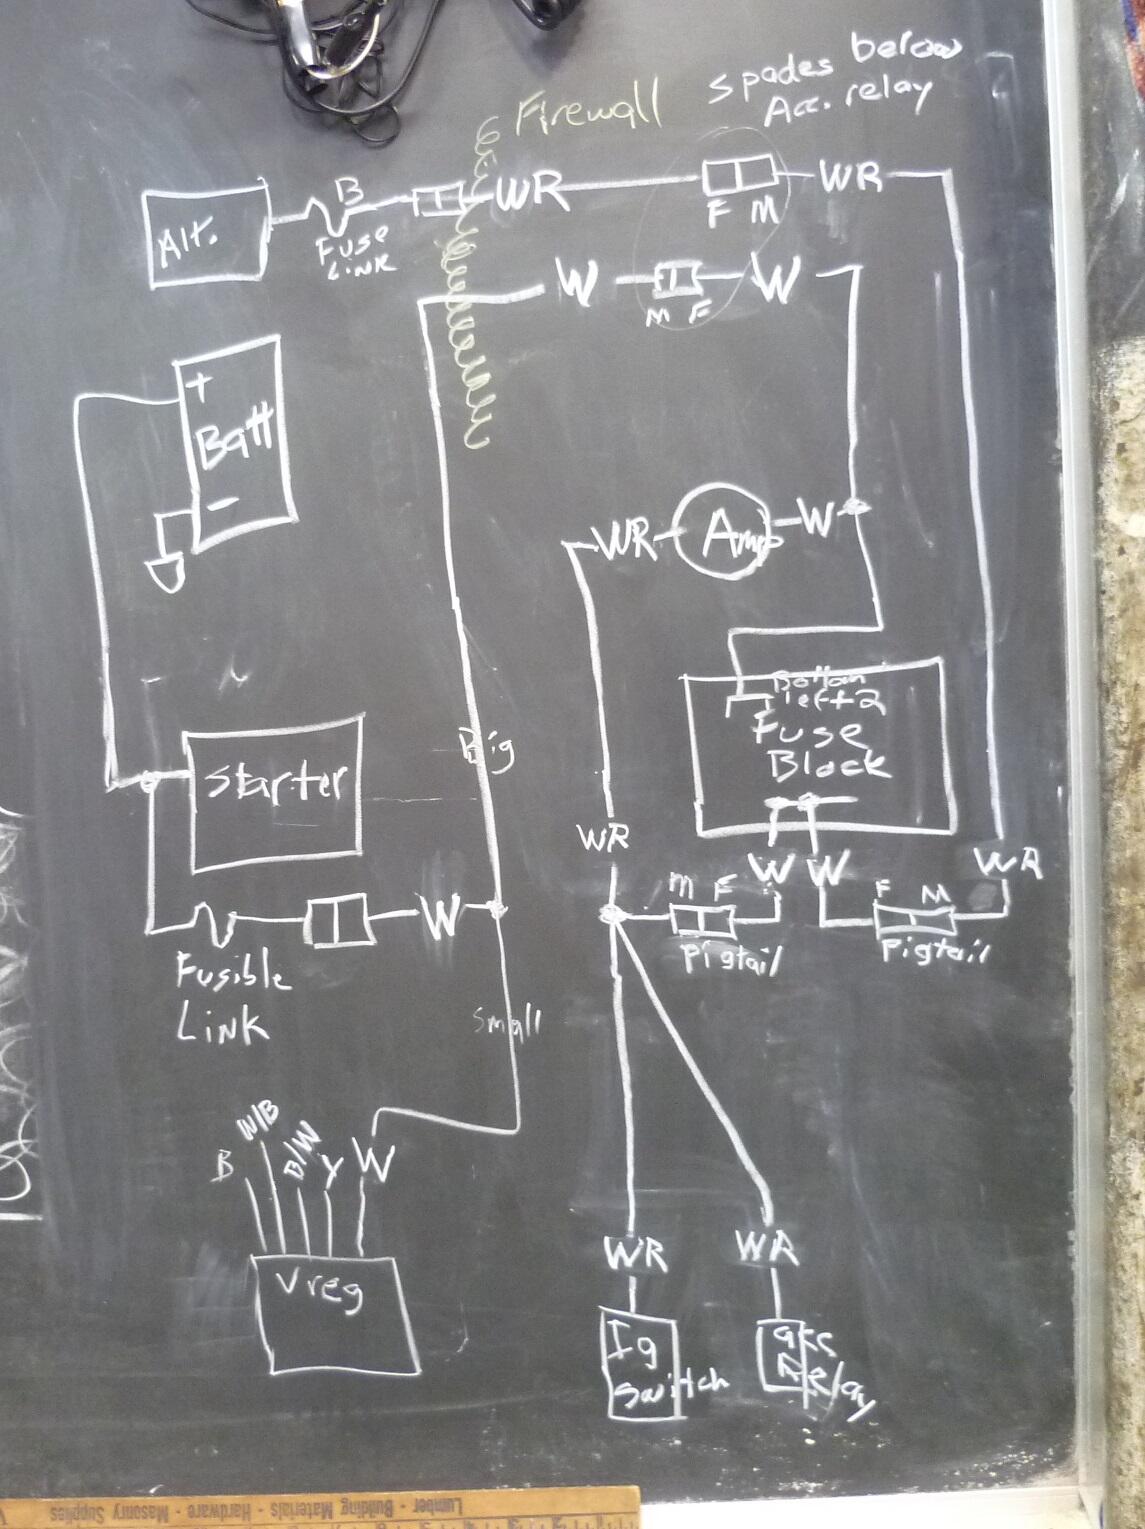 Firewall
spades below
Acc. relay
Alt.
B
Fuse
Link
WR
F M
WR
W
M F
W
+
Batt
-
WR
Amp
W
Bottom
left 2
Fuse
Block
Big
Starter
WR
W W
WR
M F
Pigtail
F M
Pigtail
W
Fusible
Link
Small
B
W/B
B/W
Y
W
Vreg
WR
WR
Ig
Switch
acc
Relay
Lumber - Building Materials - Hardware - Masonry Supplies